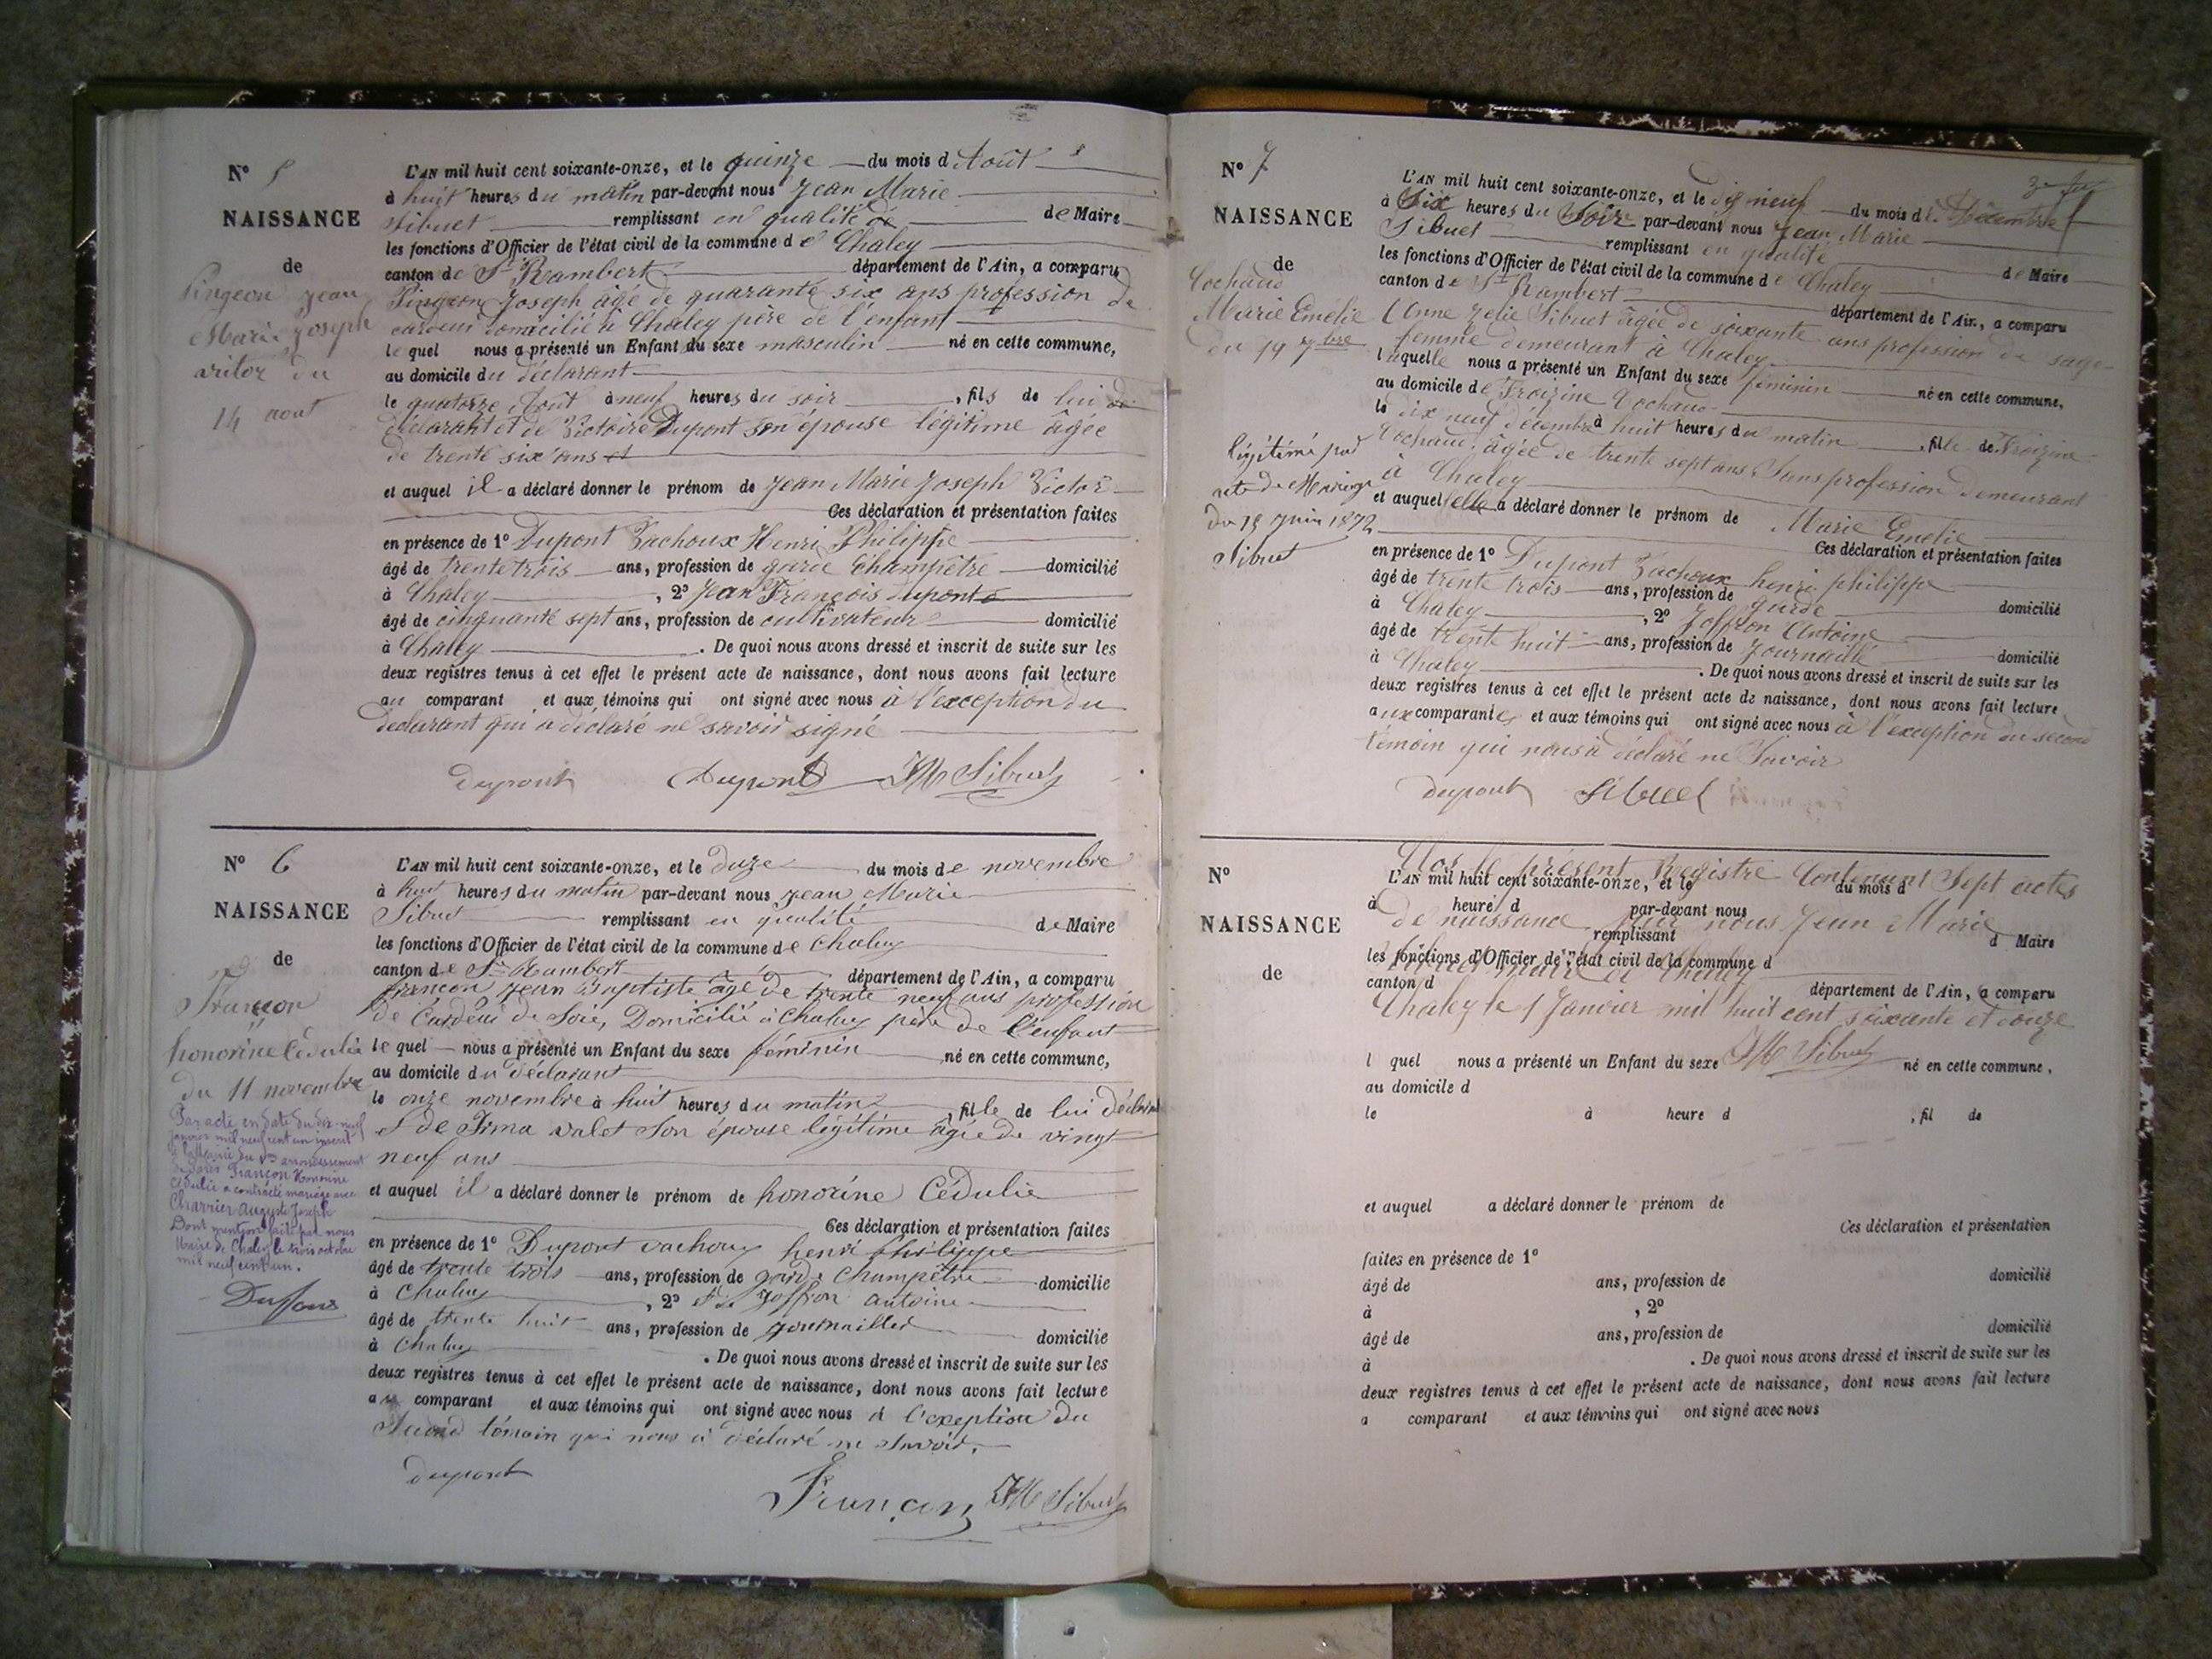 N° 5
NAISSANCE
de
Pingeon Jean
Marie Joseph
victor du
14 aout
L'AN mil huit cent soixante-onze, et le quinze du mois d Août
à huit heures du matin par-devant nous Jean Marie
Sibuet remplissant en qualité de de Maire
les fonctions d'Officier de l'état civil de la commune de Chaley
canton de St Rambert département de l'Ain, a comparu
Pingeon Joseph âgé de quarante six ans profession de
cardeur domicilié à Chaley père de l'enfant
le quel nous a présenté un Enfant du sexe masculin né en cette commune,
au domicile du déclarant
le quatorze Août à neuf heures du soir , fils de lui
déclarant et de Victoire Dupont son épouse légitime âgée
de trente six ans et
et auquel il a déclaré donner le prénom de Jean Marie Joseph Victor
Ces déclaration et présentation faites
en présence de 1° Dupont Vachoux Henri Philippe
âgé de trente trois ans, profession de garde Champêtre domicilié
à Chaley , 2° Jean François dupont
âgé de cinquante sept ans, profession de cultivateur domicilié
à Chaley . De quoi nous avons dressé et inscrit de suite sur les
deux registres tenus à cet effet le présent acte de naissance, dont nous avons fait lecture
au comparant et aux témoins qui ont signé avec nous à l'exception du
déclarant qui a déclaré ne savoir signé
dupont Dupont JM Sibuet
N° 6
NAISSANCE
de
Françon
honorine Cédulie
du 11 novembre
Par acte en date du dix-neuf
janvier mil neuf cent un inscrit
à la Mairie du arrondissement
de Paris Françon Honorine
Cédulie a contracté mariage avec
Charrier Auguste Joseph
Dont mention faite par nous
Maire de Chaley le trois octobre
mil neuf cent un.
L'AN mil huit cent soixante-onze, et le douze du mois de novembre
à huit heures du matin par-devant nous jean Marie
Sibuet remplissant en qualité de Maire
les fonctions d'Officier de l'état civil de la commune de Chaley
canton de St Rambert département de l'Ain, a comparu
françon jean Baptiste âgé de trente neuf ans profession
de Cardeur de Soie, Domicilié à Chaley père de l'enfant
le quel nous a présenté un Enfant du sexe féminin né en cette commune,
au domicile du déclarant
le onze novembre à huit heures du matin , fille de lui déclarant
et de valet Son épouse légitime âgée de vingt
neuf ans
et auquel il a déclaré donner le prénom de honorine Cédulie
Ces déclaration et présentation faites
en présence de 1° Dupont vachoux henri philippe
âgé de trente trois ans, profession de garde Champêtre domicilié
à Chaley , 2° Joffron antoine
âgé de trente huit ans, profession de journallier domicilié
à Chaley . De quoi nous avons dressé et inscrit de suite sur les
deux registres tenus à cet effet le présent acte de naissance, dont nous avons fait lecture
au comparant et aux témoins qui ont signé avec nous à l'exeption du
second témoin qui nous a déclaré ne savoir.
dupont
Françon JM Sibuet
N° 7
NAISSANCE
de
Cochaud
Marie Emelie
du 19 Xbre
légitimé par
acte de Mariage
du 18 Juin 1872
Sibuet
L'AN mil huit cent soixante-onze, et le dix neuf du mois de Décembre
à Six heures du Soir par-devant nous Jean Marie
Sibuet remplissant en qualité de Maire
les fonctions d'Officier de l'état civil de la commune de Chaley
canton de St Rambert département de l'Ain, a comparu
Anne Zelie Sibuet âgée de soixante ans profession de sage
femme demeurant à Chaley
laquelle nous a présenté un Enfant du sexe féminin né en cette commune,
au domicile de Froizine Cochaud
le dix neuf décembre à huit heures du matin , fille de Froizine
Cochaud, âgée de trente sept ans Sans profession demeurant
à Chaley
et auquel elle a déclaré donner le prénom de Marie Emelie
Ces déclaration et présentation faites
en présence de 1° Dupont Vachoux henri philippe
âgé de trente trois ans, profession de garde domicilié
à Chaley , 2° Joffron Antoine
âgé de trente huit ans, profession de Journaillé domicilié
à Chaley . De quoi nous avons dressé et inscrit de suite sur les
deux registres tenus à cet effet le présent acte de naissance, dont nous avons fait lecture
aux comparantes et aux témoins qui ont signé avec nous à l'exception du second
témoin qui nous a déclaré ne Savoir
dupont Sibuet
N°
NAISSANCE
de
Clos le présent Registre Contenant Sept actes
L'AN mil huit cent soixante-onze, et le du mois d
à heure d par-devant nous
de naissance par nous Jean Marie
remplissant d Maire
les fonctions d'Officier de l'état civil de la commune d
Sibuet maire de Chaley
canton d département de l'Ain, a comparu
Chaley le 1 Janvier mil huit cent soixante et douze
l quel nous a présenté un Enfant du sexe né en cette commune,
JM Sibuet
au domicile d
le à heure d , fil de
et auquel a déclaré donner le prénom de
Ces déclaration et présentation
faites en présence de 1°
âgé de ans, profession de domicilié
à , 2°
âgé de ans, profession de domicilié
à . De quoi nous avons dressé et inscrit de suite sur les
deux registres tenus à cet effet le présent acte de naissance, dont nous avons fait lecture
a comparant et aux témoins qui ont signé avec nous